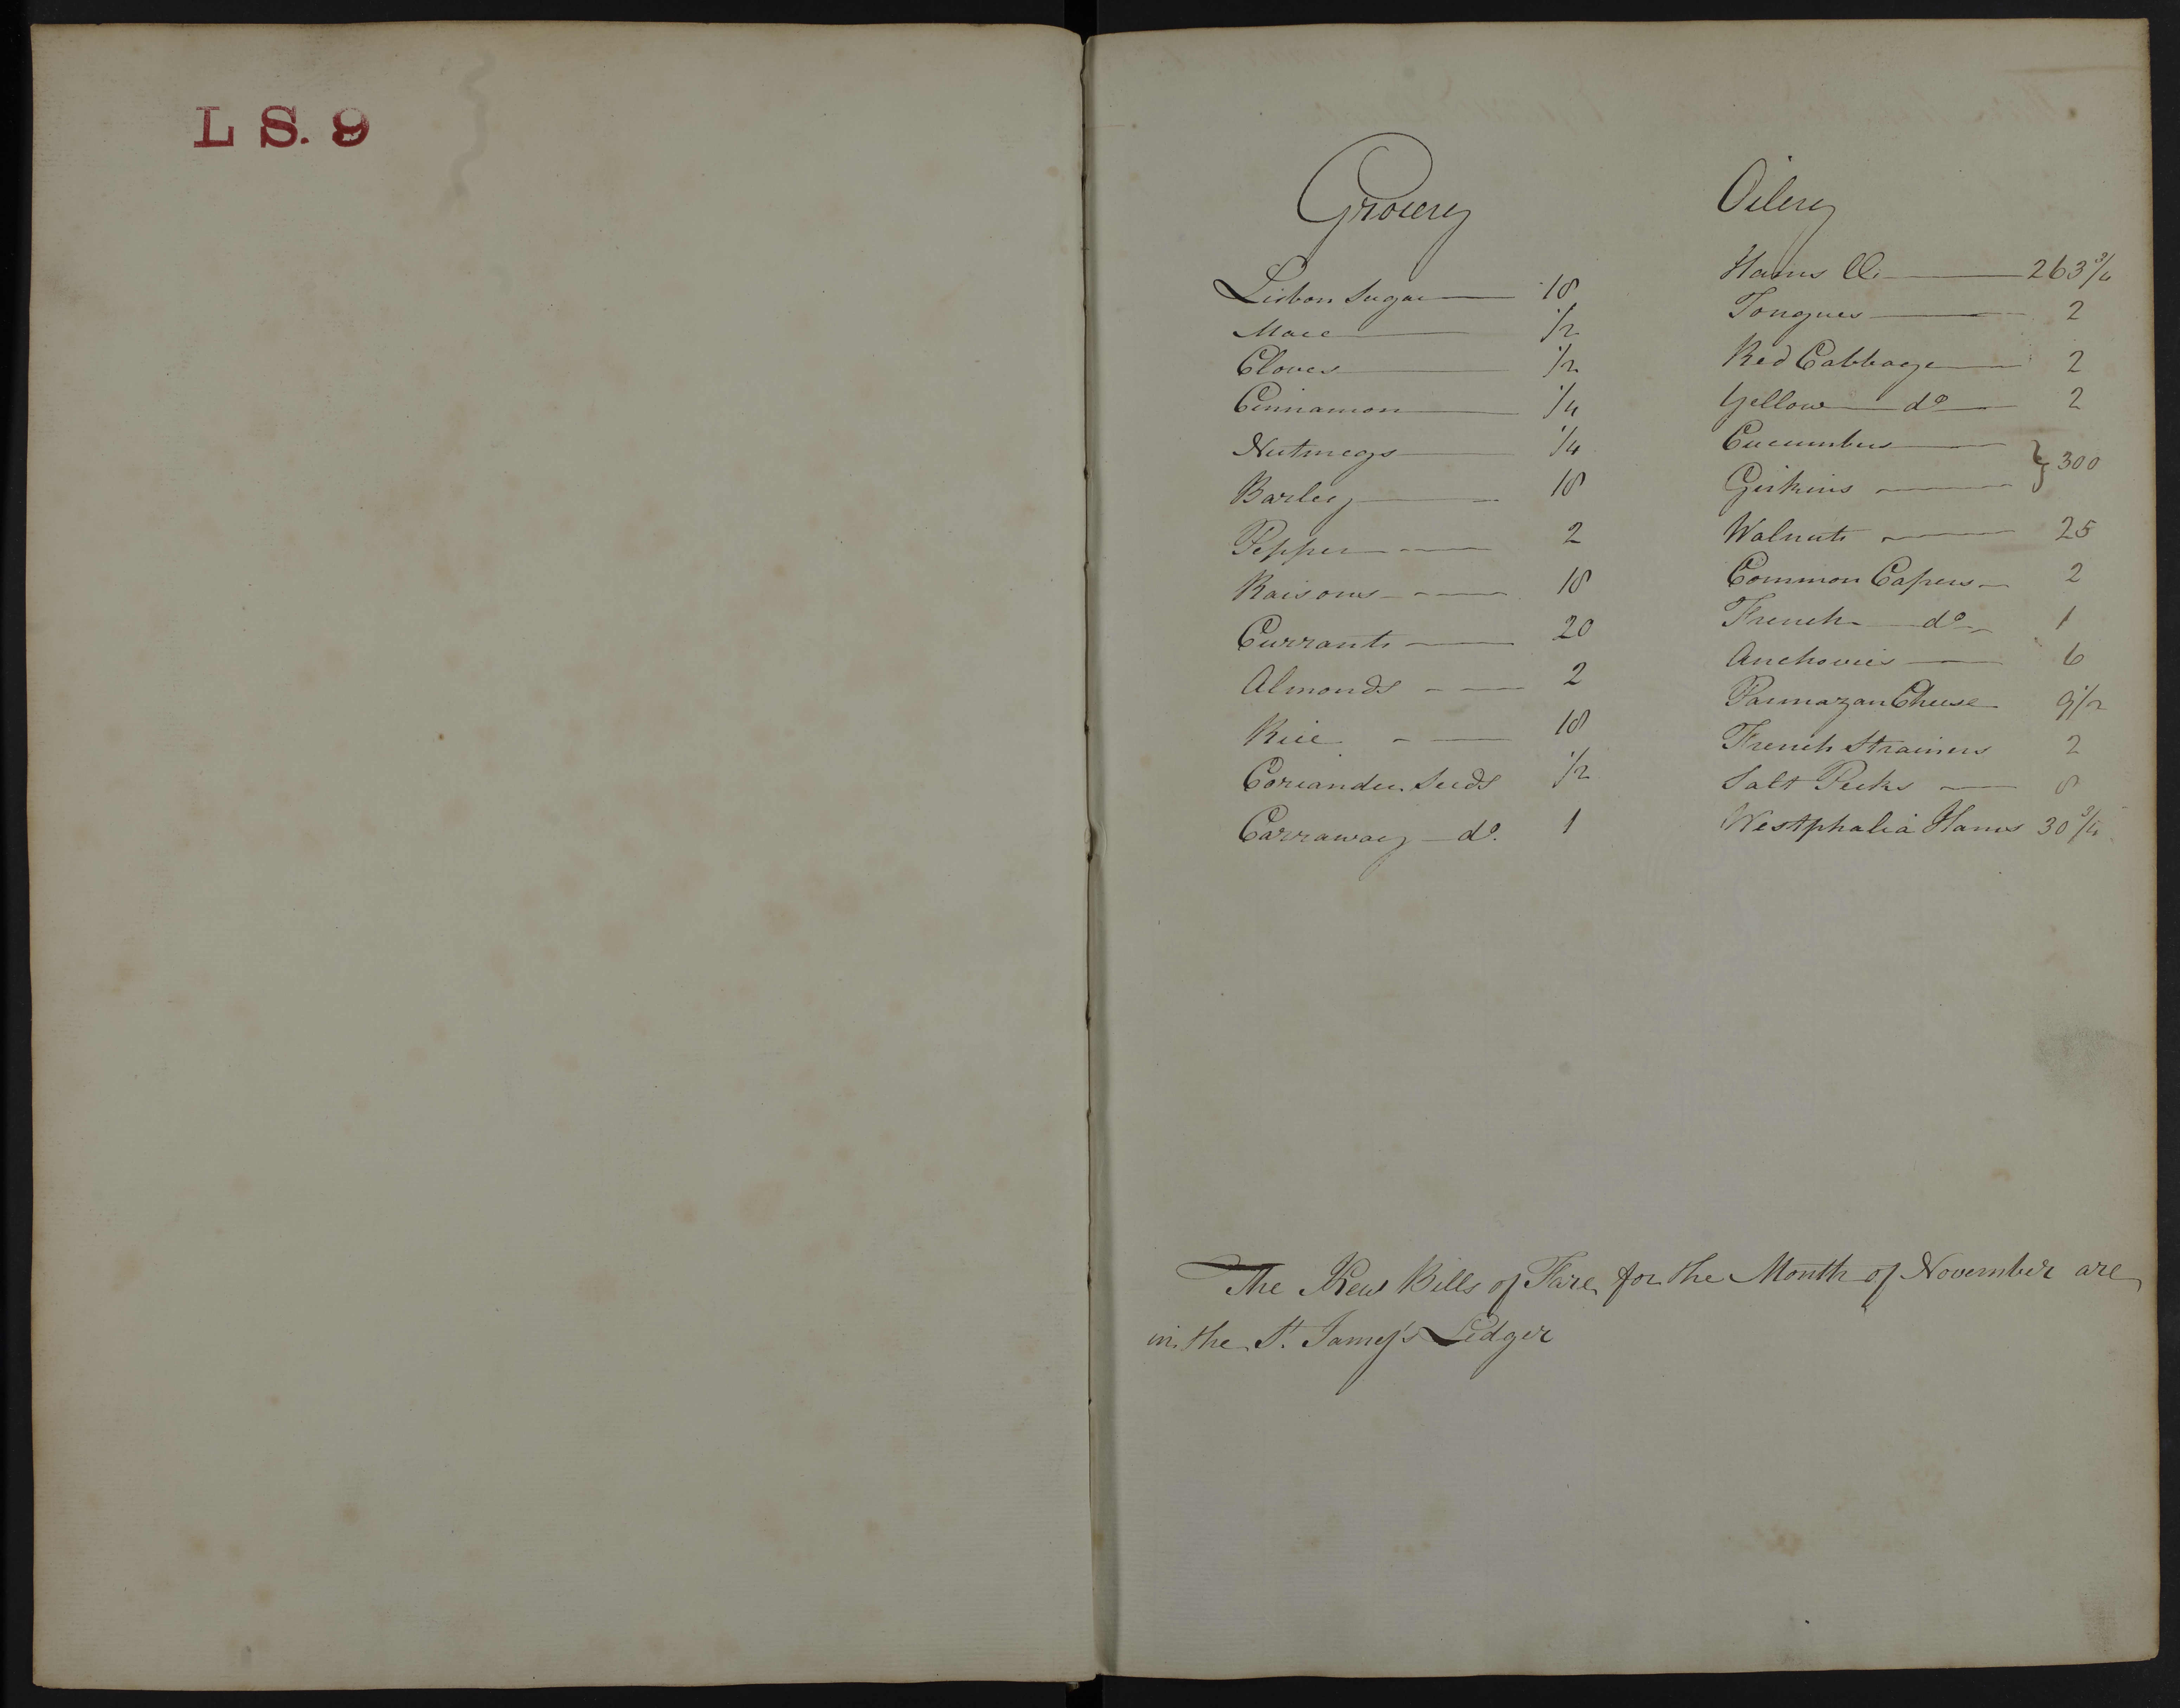 L S. 9
Grocery
Lisbon Sugar 18
Mace 1/2
Cloves 1/2
Cinnamon 1/4
Nutmegs 1/4
Barley 18
Pepper 2
Raisons 18
Currants 20
Almonds 2
Rice 18
Coriander Seeds 1/2
Carraway do. 1
Oilery
Hams 263 3/4
Tongues 2
Red Cabbage 2
Yellow do 2
Cucumbers
Girkins } 300
Walnuts 25
Common Capers 2
French do 1
Anchovies 6
Parmazan Cheese 9 1/2
French Strainers 2
Salt Pecks 8
Westphalia Hams 30 3/4
The Kew Bills of Fare for the Month of November are
in the St. James's Ledger